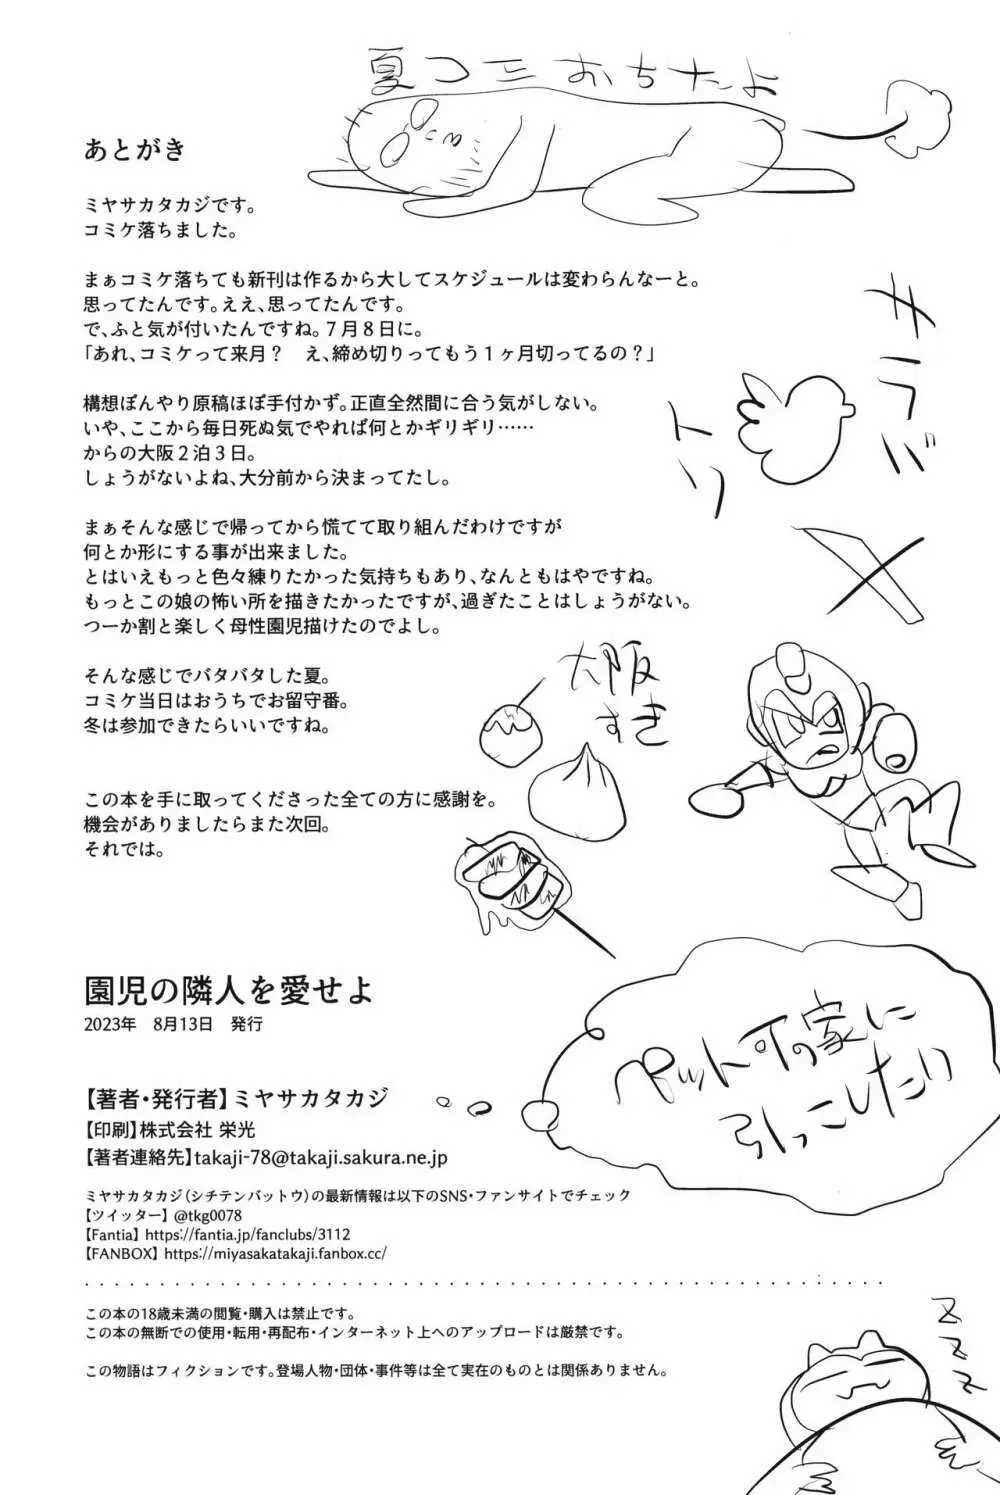 夏コミおちたよ
あとがき
ミヤサカタカジです。
コミケ落ちました。
まぁコミケ落ちても新刊は作るから大してスケジュールは変わらんなーと。
思ってたんです。ええ、思ってたんです。
で、ふと気が付いたんですね。7月8日に。
「あれ、コミケって来月?　え、締め切りってもう1ヶ月切ってるの?」
構想ぼんやり原稿ほぼ手付かず。正直全然間に合う気がしない。
いや、ここから毎日死ぬ気でやれば何とかギリギリ……
からの大阪2泊3日。
しょうがないよね、大分前から決まってたし。
まぁそんな感じで帰ってから慌てて取り組んだわけですが
何とか形にする事が出来ました。
とはいえもっと色々練りたかった気持ちもあり、なんともはやですね。
もっとこの娘の怖い所を描きたかったですが、過ぎたことはしょうがない。
つーか割と楽しく母性園児描けたのでよし。
そんな感じでバタバタした夏。
コミケ当日はおうちでお留守番。
冬は参加できたらいいですね。
この本を手に取ってくださった全ての方に感謝を。
機会がありましたらまた次回。
それでは。
サラバ
トリ
大阪
すき
ペット可の家に
引っこしたい
園児の隣人を愛せよ
2023年　8月13日　発行
【著者・発行者】ミヤサカタカジ
【印刷】株式会社 栄光
【著者連絡先】takaji-78@takaji.sakura.ne.jp
ミヤサカタカジ（シチテンバットウ）の最新情報は以下のSNS・ファンサイトでチェック
【ツイッター】@tkg0078
【Fantia】https://fantia.jp/fanclubs/3112
【FANBOX】https://miyasakatakaji.fanbox.cc/
この本の18歳未満の閲覧・購入は禁止です。
この本の無断での使用・転用・再配布・インターネット上へのアップロードは厳禁です。
この物語はフィクションです。登場人物・団体・事件等は全て実在のものとは関係ありません。
Z
Z
Z